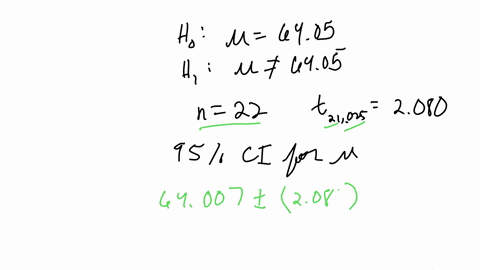 H₀: μ = 64.05
H₁: μ ≠ 64.05
n = 22 t₂₁,.₀₂₅ = 2.080
95% CI for μ
64.007 ± (2.08 )